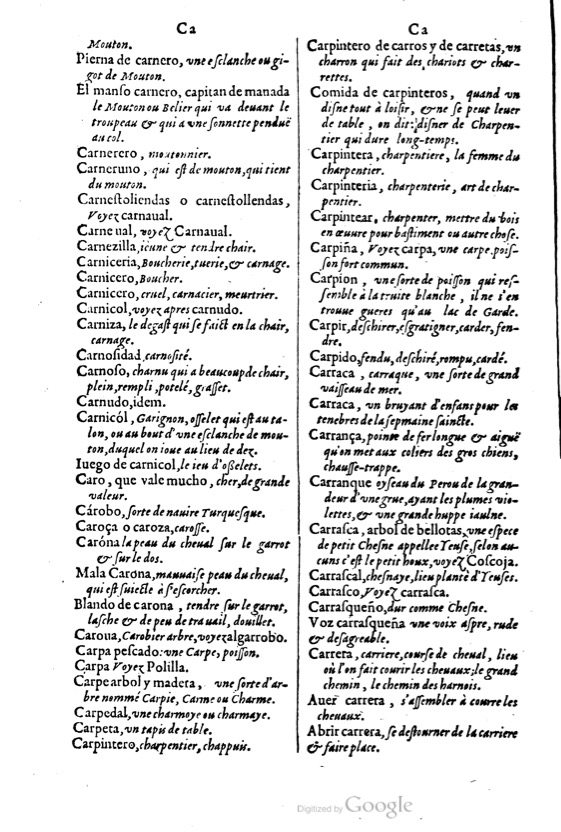 Ca
Mouton.
Pierna de carnero, vne esclanche ou gi-
got de Mouton.
El manso carnero, capitan de manada
le Mouton ou Belier qui va deuant le
troupeau & qui a vne sonnette penduë
au col.
Carnerero, moutonnier.
Carneruno, qui est de mouton, qui tient
du mouton.
Carnestoliendas o carnestollendas,
Voyez carnaual.
Carne ual, voyez Carnaual.
Carnezilla, ieune & tendre chair.
Carniceria, Boucherie, tuerie, & carnage.
Carnicero, Boucher.
Carnicero, cruel, carnacier, meurtrier.
Carnicol, voyez apres carnudo.
Carniza, le degast qui se faict en la chair,
carnage.
Carnosidad, carnosité.
Carnoso, charnu qui a beaucoup de chair,
plein, rempli, potelé, grasset.
Carnudo, idem.
Carnicól, Garignon, osselet qui est au ta-
lon, ou au bout d'vne esclanche de mou-
ton, duquel on ioue au lieu de dez.
Iuego de carnicol, le ieu d'osselets.
Caro, que vale mucho, cher, de grande
valeur.
Cárobo, sorte de nauire Turquesque.
Caroça o caroza, carosse.
Caróna la peau du cheual sur le garrot
& sur le dos.
Mala Carona, mauuaise peau du cheual,
qui est suiecte à s'escorcher.
Blando de carona, tendre sur le garrot,
lasche & de peu de trauail, douillet.
Caroua, Carobier arbre, voyez algarrobo.
Carpa pescado: vne Carpe, poisson.
Carpa Voyez Polilla.
Carpe arbol y madera, vne sorte d'ar-
bre nommé Carpie, Carme ou Charme.
Carpedal, vne charmoye ou charmaye.
Carpeta, vn tapis de table.
Carpintero, charpentier, chappuis.
Ca
Carpintero de carros y de carretas, vn
charron qui fait des chariots & char-
rettes.
Comida de carpinteros, quand vn
disne tout à loisir, & ne se peut leuer
de table, on dit: disner de Charpen-
tier qui dure long-temps.
Carpintera, charpentiere, la femme du
charpentier.
Carpinteria, charpenterie, art de char-
pentier.
Carpintear, charpenter, mettre du bois
en œuure pour bastiment ou autre chose.
Carpiña, Voyez carpa, vne carpe pois-
son fort commun.
Carpion, vne sorte de poisson qui res-
semble à la truite blanche, il ne s'en
trouue gueres qu'au lac de Garde.
Carpir, deschirer, esgratigner, carder, fen-
dre.
Carpido, fendu, deschiré, rompu, cardé.
Carraca, carraque, vne sorte de grand
vaisseau de mer.
Carraca, vn bruyant d'enfans pour les
tenebres de la sepmaine saincte.
Carrança, pointe de fer longue & aiguë
qu'on met aux coliers des gros chiens,
chausse-trappe.
Carranque oyseau du Perou de la gran-
deur d'vne grue, ayant les plumes vio-
lettes, & vne grande huppe iaulne.
Carrasca, arbol de bellotas, vne espece
de petit Chesne appellee Yeuse, selon au-
cuns c'est le petit houx, voyez Coscoja.
Carrascal, chesnaye, lieu planté d'Yeuses.
Carrasco, Voyez carrasca.
Carrasqueño, dur comme Chesne.
Voz carrasqueña vne voix aspre, rude
& desagreable.
Carrera, carriere, course de cheual, lieu
où l'on fait courir les cheuaux; le grand
chemin, le chemin des harnois.
Auer carrera, s'assembler à courre les
cheuaux.
Abrir carrera, se destourner de la carriere
& faire place.
Digitized by Google